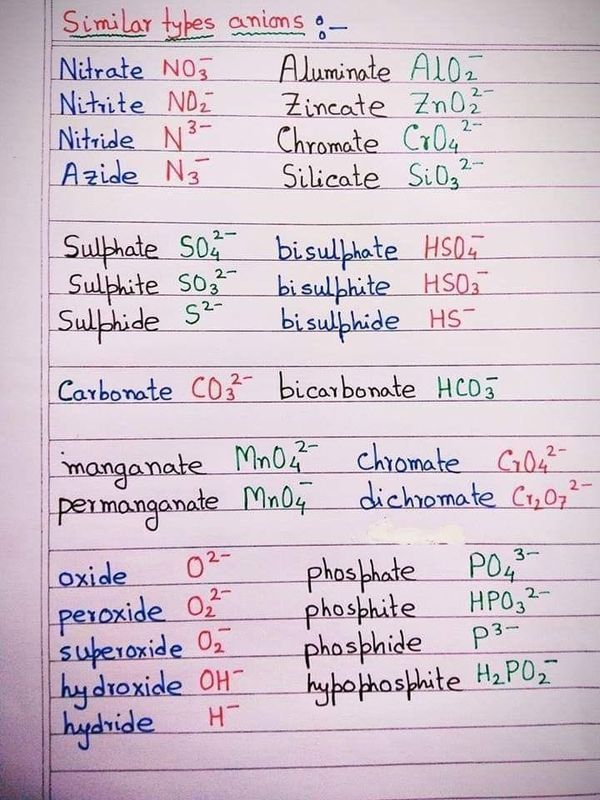 Similar types anions :-
Nitrate NO₃⁻ Aluminate AlO₂⁻
Nitrite NO₂⁻ Zincate ZnO₂²⁻
Nitride N³⁻ Chromate CrO₄²⁻
Azide N₃⁻ Silicate SiO₃²⁻
Sulphate SO₄²⁻ bisulphate HSO₄⁻
Sulphite SO₃²⁻ bisulphite HSO₃⁻
Sulphide S²⁻ bisulphide HS⁻
Carbonate CO₃²⁻ bicarbonate HCO₃⁻
manganate MnO₄²⁻ Chromate CrO₄²⁻
permanganate MnO₄⁻ dichromate Cr₂O₇²⁻
oxide O²⁻ phosphate PO₄³⁻
peroxide O₂²⁻ phosphite HPO₃²⁻
superoxide O₂⁻ phosphide P³⁻
hydroxide OH⁻ hypophosphite H₂PO₂⁻
hydride H⁻